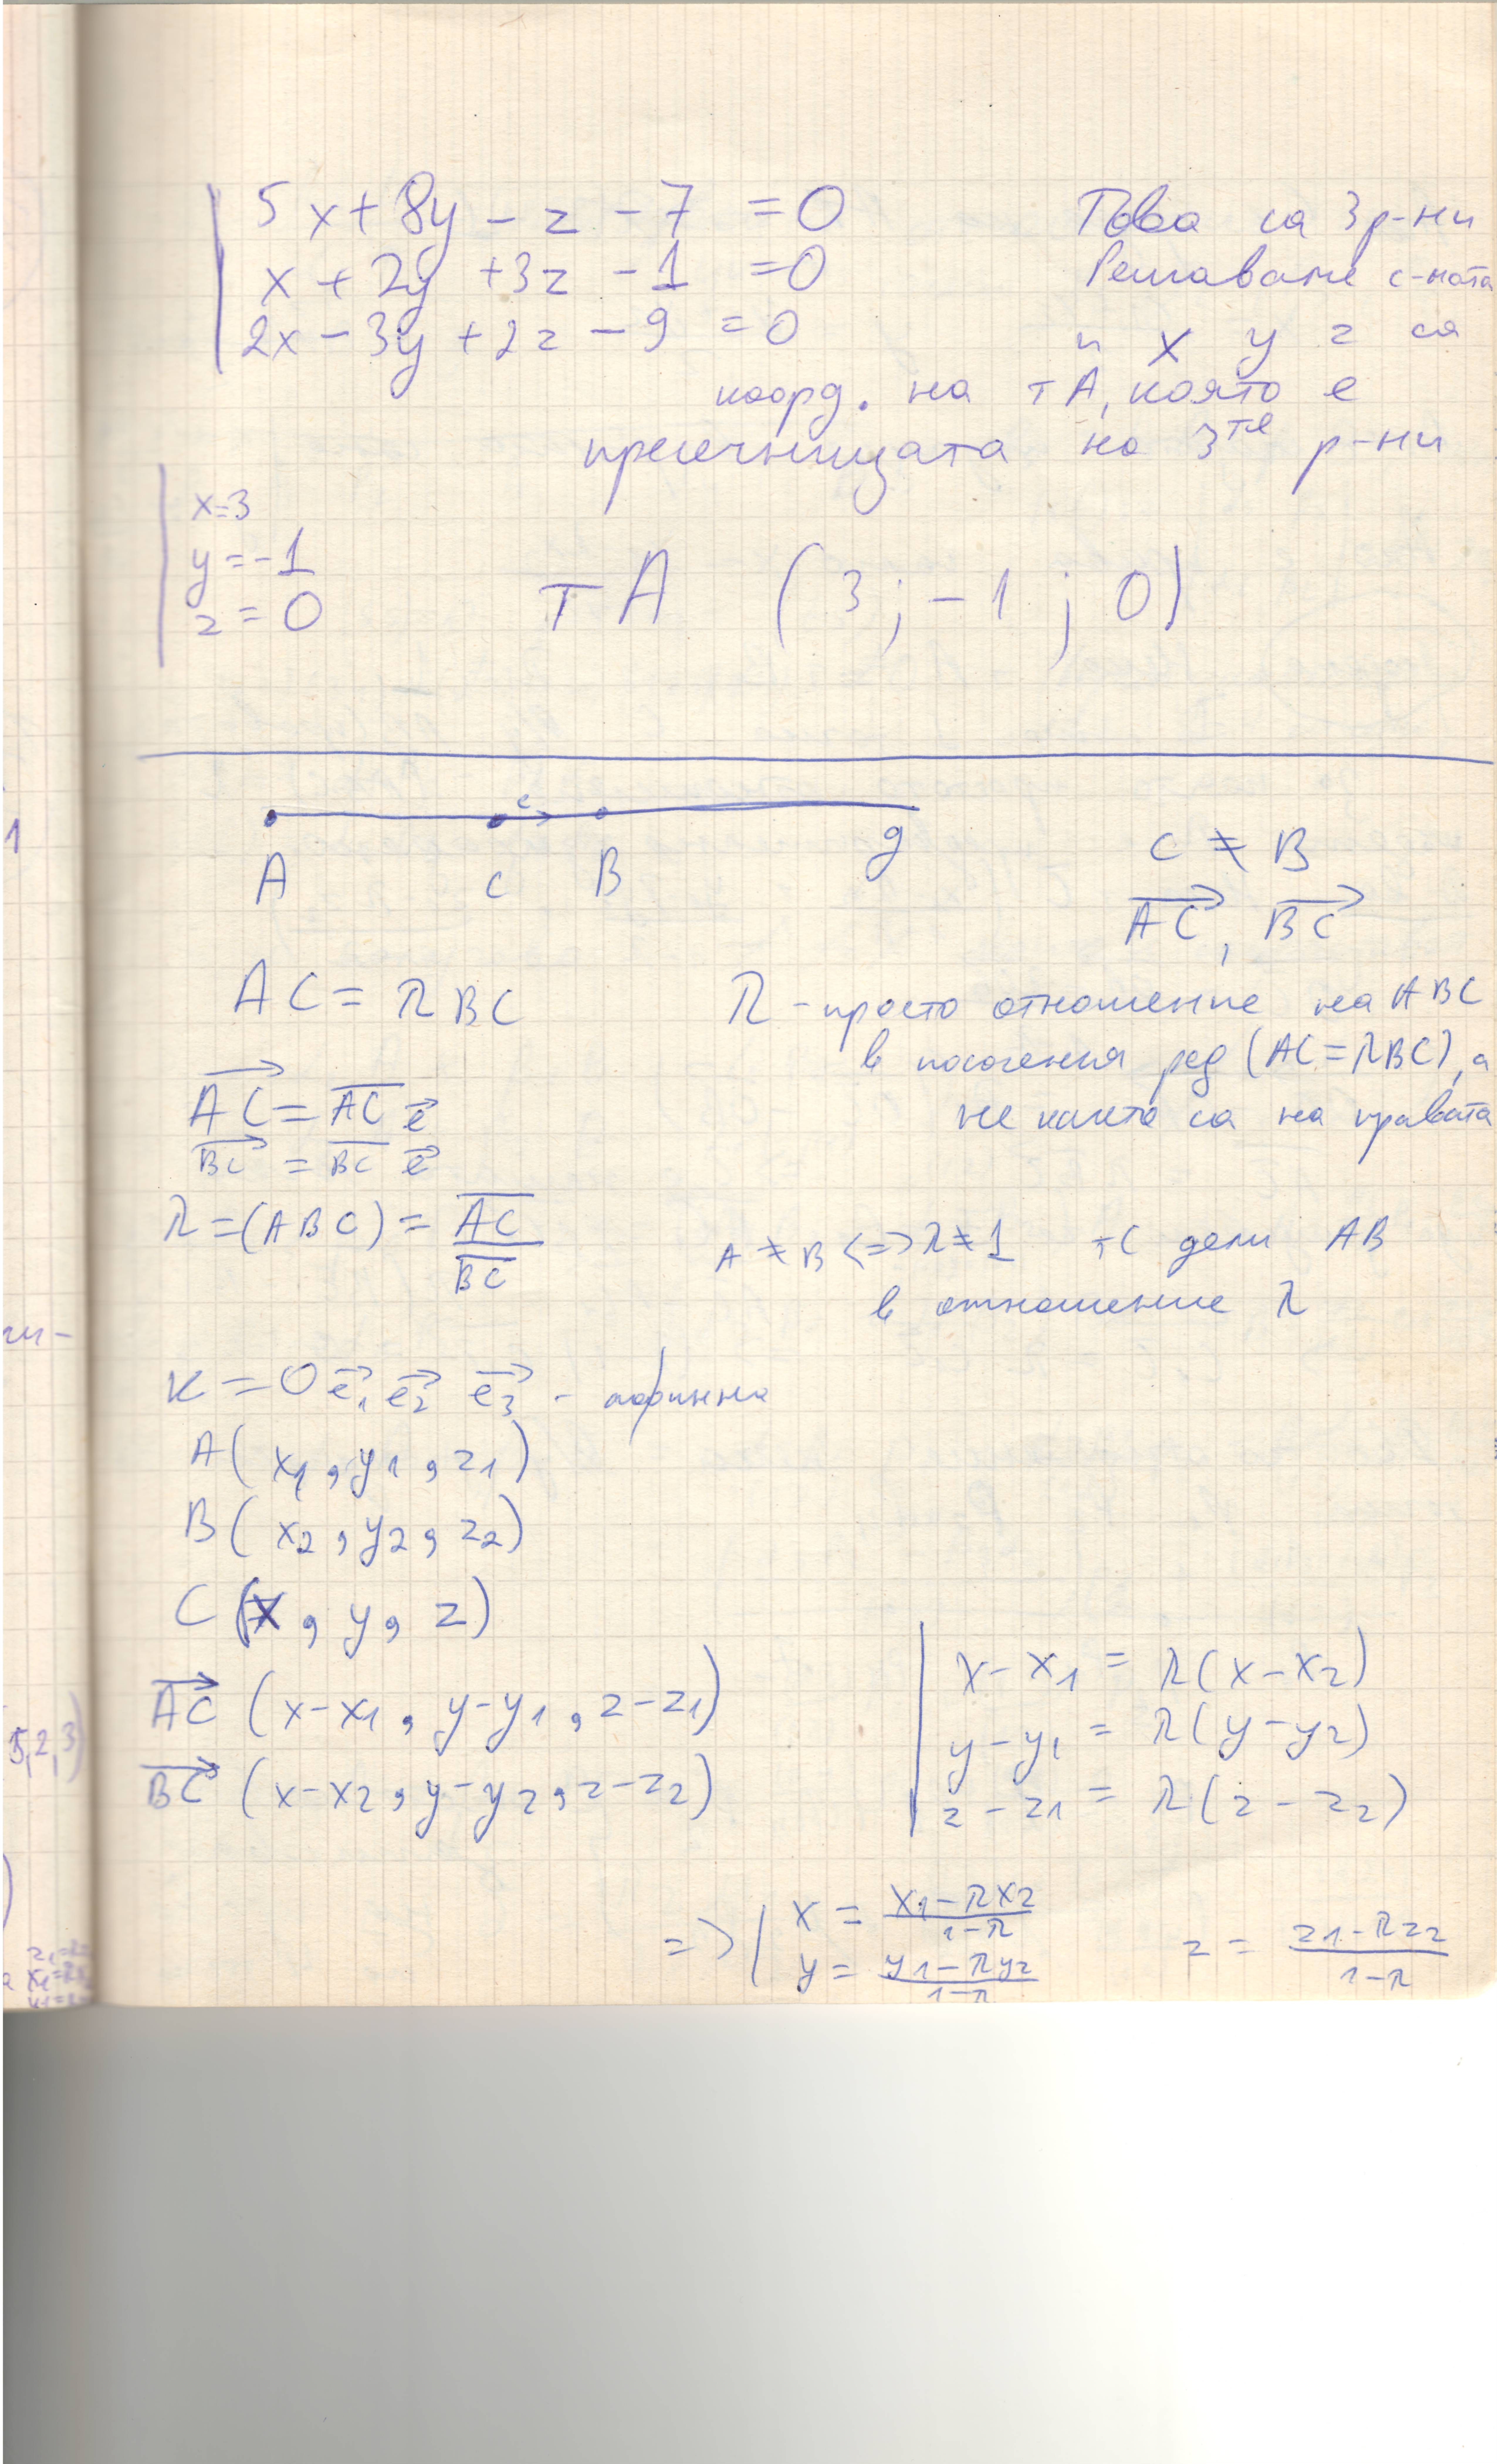 5x + 8y - z - 7 = 0 Това са 3 р-ни
x + 2y + 3z - 1 = 0 Решаваме с-мата
2x - 3y + 2z - 9 = 0 и x y z са
коорд. на тA, която е
пресечницата на 3те р-ни
x = 3
y = -1
z = 0
тA (3 ; -1 ; 0)
e
A C B g
C ≠ B
AC, BC
AC = λ BC λ - просто отношение на ABC
в посочения ред (AC = λBC), а
не както са на правата
AC = AC e
BC = BC e
λ = (ABC) = AC / BC
A ≠ B <=> λ ≠ 1 тC дели AB
в отношение λ
K = O e1 e2 e3 - афинна
A (x1, y1, z1)
B (x2, y2, z2)
C (x, y, z)
AC (x-x1, y-y1, z-z1)
BC (x-x2, y-y2, z-z2)
x - x1 = λ(x - x2)
y - y1 = λ(y - y2)
z - z1 = λ(z - z2)
=> x = (x1 - λx2) / (1 - λ)
y = (y1 - λy2) / (1 - λ)
z = (z1 - λz2) / (1 - λ)
1
5,2,3)